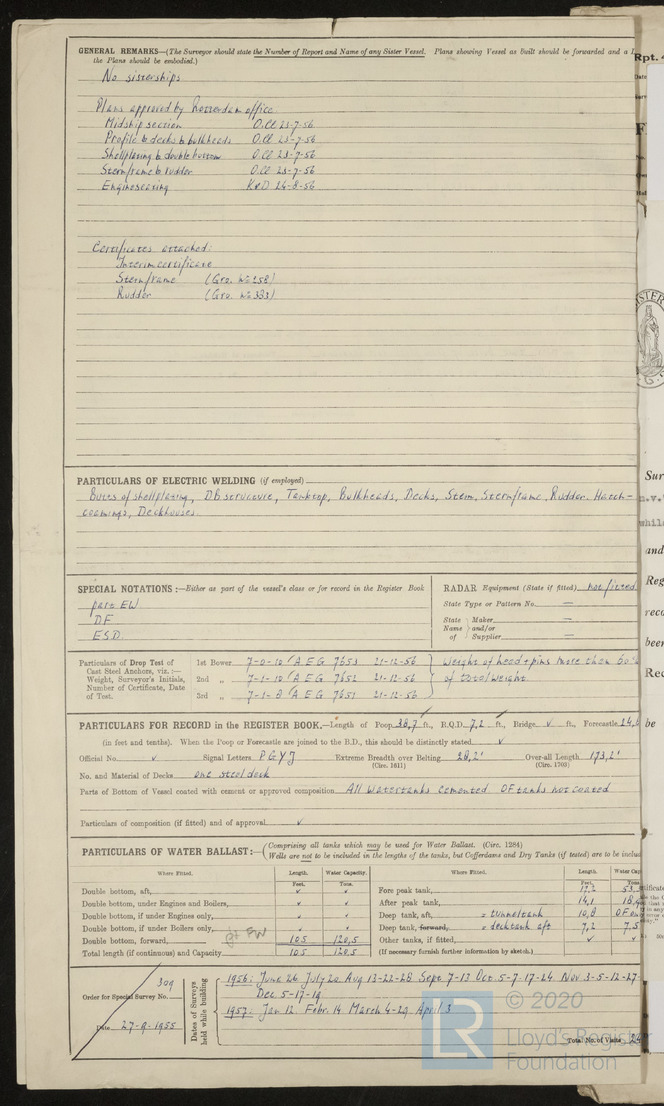 GENERAL REMARKS—(The Surveyor should state the Number of Report and Name of any Sister Vessel. Plans showing Vessel as built should be forwarded and a
the Plans should be embodied.)
No sisterships
Plans approved by Rotterdam office
Midship section O.Cl 23-7-56
Profile & decks & bulkheads O.Cl 23-7-56
Shellplating & double bottom O.Cl 23-7-56
Sternframe & rudder O.Cl 23-7-56
Engineseating KvD 24-8-56
Certificates attached:
Interimcertificate
Sternframe (Gro. No 258)
Rudder (Gro. No 383)
PARTICULARS OF ELECTRIC WELDING (if employed)
Butts of shellplating, DB structure, Tanktop, Bulkheads, Decks, Stem, Sternframe, Rudder. Hatch-
coamings, Deckhouses.
SPECIAL NOTATIONS:—Either as part of the vessel's class or for record in the Register Book
part EW
DF
ESD.
RADAR Equipment (State if fitted) not fitted
State Type or Pattern No. —
State Name of Maker and/or Supplier — —
Particulars of Drop Test of Cast Steel Anchors, viz.:— Weight, Surveyor's Initials, Number of Certificate, Date of Test.
1st Bower 7-0-10 A E G 7653 21-12-56 weight of head + pins more than 60%
2nd „ 7-1-10 A E G 7652 21-12-56 of total weight
3rd „ 7-1-8 A E G 7651 21-12-56
PARTICULARS FOR RECORD in the REGISTER BOOK.—Length of Poop 38,7 ft., R.Q.D. 7,2 ft., Bridge ✓ ft., Forecastle 24,6
(in feet and tenths). When the Poop or Forecastle are joined to the B.D., this should be distinctly stated ✓
Official No. ✓ Signal Letters P G Y J Extreme Breadth over Belting 28,2' Over-all Length 173,2'
(Circ. 1611) (Circ. 1703)
No. and Material of Decks one steel deck
Parts of Bottom of Vessel coated with cement or approved composition All Watertanks cemented OF tanks not coated
Particulars of composition (if fitted) and of approval ✓
PARTICULARS OF WATER BALLAST:—(Comprising all tanks which may be used for Water Ballast. (Circ. 1284)
Wells are not to be included in the lengths of the tanks, but Cofferdams and Dry Tanks (if tested) are to be includ
Where Fitted. Length. Water Capacity. Where Fitted. Length. Water Cap
Feet. Tons. Feet. Tons.
Double bottom, aft, ✓ ✓ Fore peak tank, 17,2 53,
Double bottom, under Engines and Boilers, ✓ ✓ After peak tank, 14,1 18,
Double bottom, if under Engines only, ✓ ✓ Deep tank, aft, = tunneltank 10,8 OF
Double bottom, if under Boilers only, ✓ ✓ Deep tank, forward, = decktank aft 7,2 7,5
Double bottom, forward, FW 105 120,5 Other tanks, if fitted, ✓ ✓
Total length (if continuous) and Capacity 105 120,5 (If necessary furnish further information by sketch.)
309
Order for Special Survey No.
Date 27-9-1955
Dates of Surveys held while building
1956: June 26 July 20 Aug 13-22-28 Sept. 7-13 Oct. 5-7-17-24 Nov 3-5-12-27-
Dec. 5-17-19
1957: Jan 12 Febr. 14 March 4-29 April 3
Total No. of Visits 24
© 2020
Lloyd's Register
Foundation
LR
Rpt.
Sur
while
and
Reg
reco
been
Rec
be